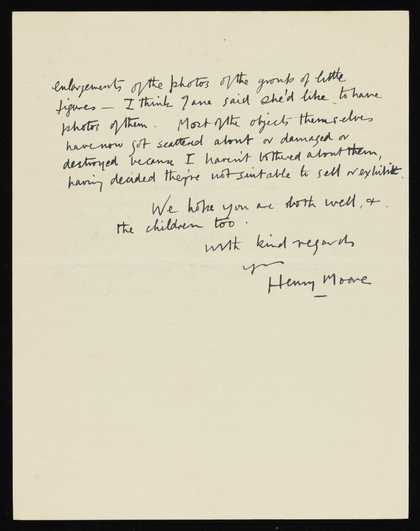 enlargements of the photos of the groups of little
figures — I think Jane said she'd like to have
photos of them. Most of the objects themselves
have now got scattered about or damaged or
destroyed because I haven't bothered about them,
having decided they're not suitable to sell or exhibit.
We hope you are both well, &
the children too.
with kind regards
yrs
Henry Moore